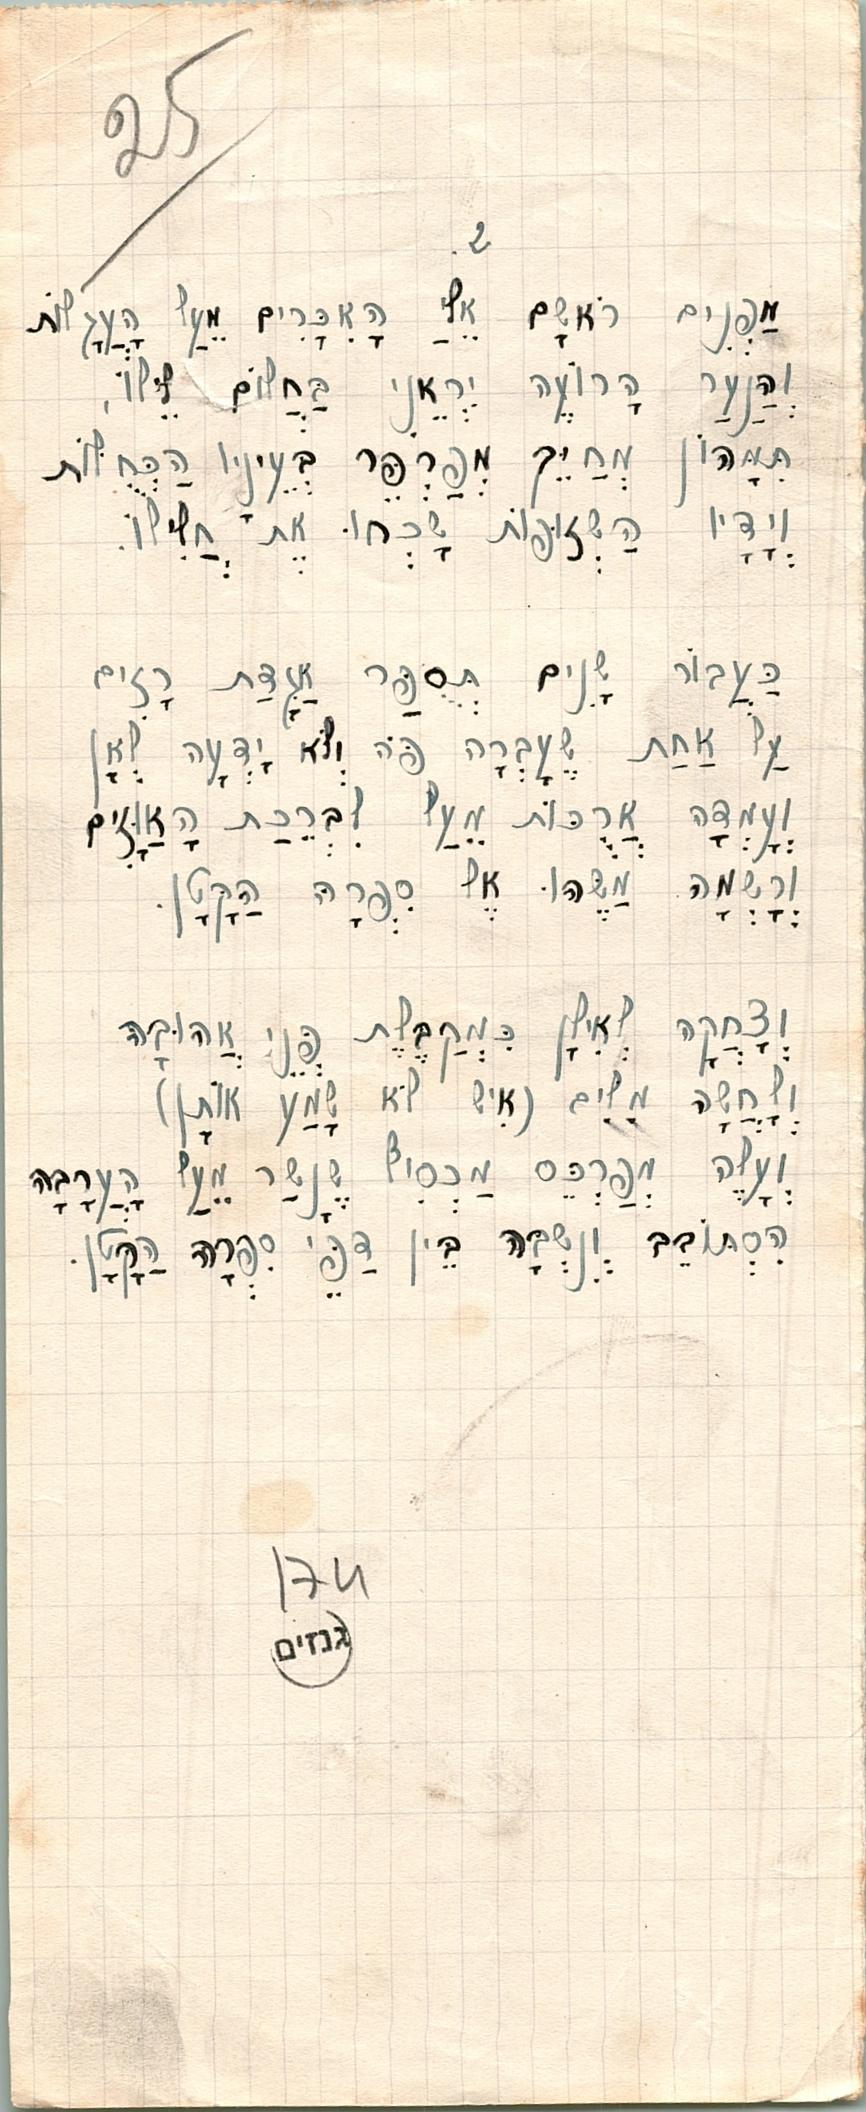 25
ש.
מַפְנִים רֹאשָׁם אֵלַי הָאִכָּרִים מֵעַל הָעֲגָלוֹת
וְהַנַּעַר הָרוֹעֶה יִרְאֵנִי בַּחֲלוֹם לֵילוֹ,
תִּמָּהוֹן מְחַיֵּךְ מְפַרְפֵּר בְּעֵינָיו הַכְּחֻלּוֹת
וְיָדָיו הַשְּׁזוּפוֹת שָׁכְחוּ אֶת חֲלִילוֹ.
כַּעֲבוֹר שָׁנִים תְּסֻפַּר אַגָּדַת רָזִים
עַל אַחַת שֶׁעָבְרָה פֹּה וְלֹא יָדְעָה לְאָן
וְעָמְדָה אֲרֻכּוֹת מֵעַל לִבְרֵכַת הָאַוָּזִים
וְרָשְׁמָה מַשֶּׁהוּ אֶל סִפְרָהּ הַקָּטָן.
וְצָחֲקָה לְאִילָן כִּמְקַבֶּלֶת פְּנֵי אֲהוּבָהּ
וְלָחֲשָׁה מִלִּים (אִישׁ לֹא שָׁמַע אוֹתָן)
וְעָלֶה מְפַרְכֵּס מַכְסִיף שֶׁנָּשַׁר מֵעַל הָעֲרָבָה
הִסְתּוֹבֵב וְנִשְׁבָּה בֵּין דַּפֵּי סִפְרָהּ הַקָּטָן.
גנזים